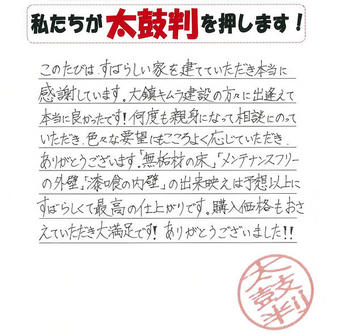 私たちが太鼓判を押します!
このたびは、すばらしい家を建てていただき本当に
感謝しています。大鎮キムラ建設の方々に出逢えて
本当に良かったです!何度も親身になって相談にのって
いただき、色々な要望にもこころよく応じていただき、
ありがとうございます。「無垢材の床」、「メンテナンスフリー
の外壁」、「漆喰の内壁」の出来映えは予想以上に
すばらしくて最高の仕上がりです。購入価格もおさ
えていただき大満足です!ありがとうございました!!
太鼓判